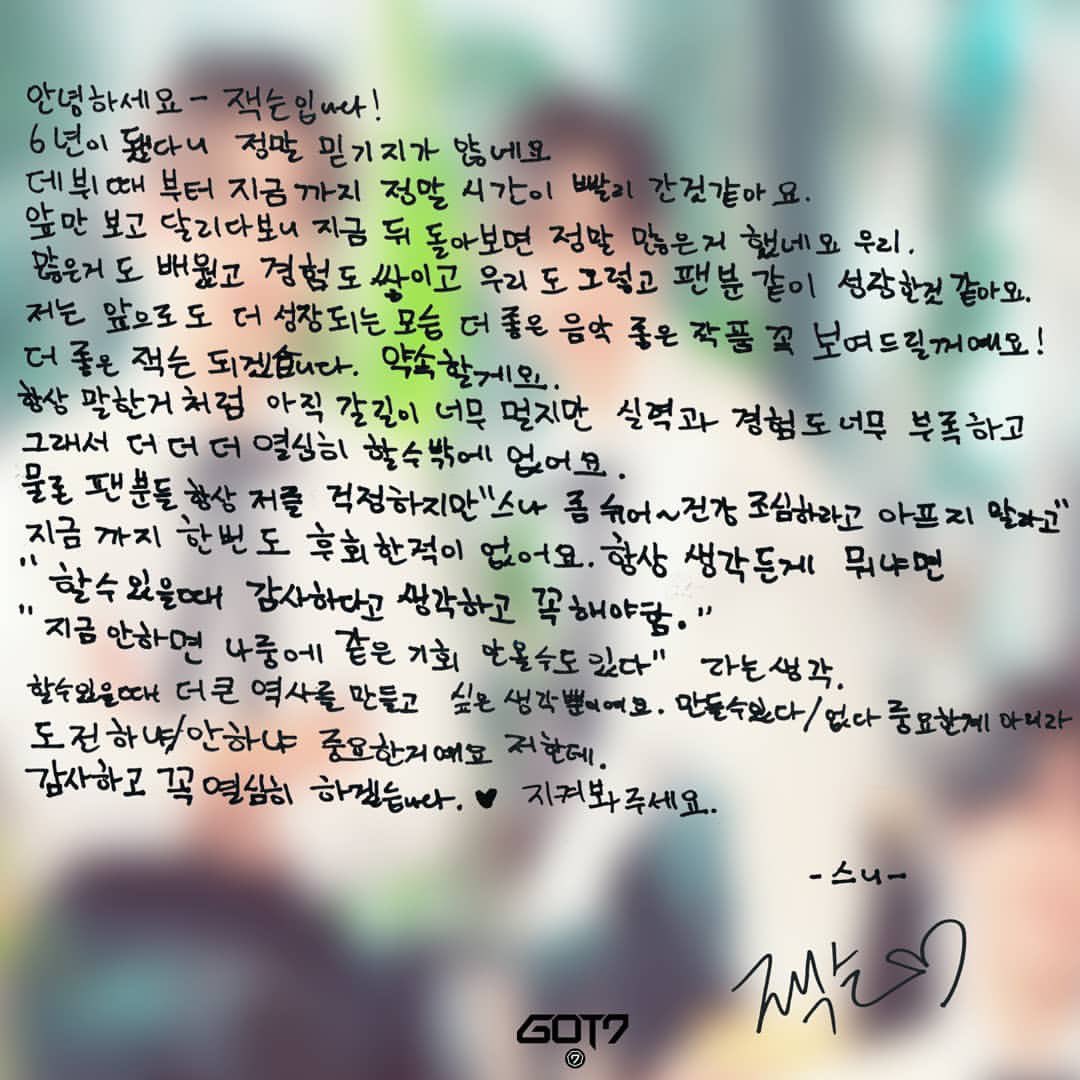 안녕하세요 - 잭슨입니다!
6년이 됐다니 정말 믿기지가 않네요
데뷔때 부터 지금까지 정말 시간이 빨리 간것같아요.
앞만 보고 달리다보니 지금 뒤 돌아보면 정말 많은거 했네요 우리.
많은거 도 배웠고 경험도 쌓이고 우리도 그렇고 팬분 같이 성장한것 같아요.
저는 앞으로도 더 성장되는 모습 더 좋은 음악 좋은 작품 꼭 보여드릴꺼예요!
더 좋은 잭슨 되겠습니다. 약속할게요.
항상 말한거처럼 아직 갈길이 너무 멀지만 실력과 경험도 너무 부족하고
그래서 더 더 더 열심히 할수밖에 없어요.
물론 팬분들 항상 저를 걱정하지만 "스니 좀 쉬어~건강 조심하라고 아프지 말라고"
지금 까지 한번도 후회한적이 없어요. 항상 생각든게 뭐냐면
"할수있을때 감사하다고 생각하고 꼭해야함."
"지금 안하면 나중에 같은 기회 안올수도 있다" 라는 생각.
할수있을때 더 큰 역사를 만들고 싶은 생각뿐이예요. 만들수있다/없다 중요한게 아니라
도전하냐/안하냐 중요한거예요 저한테.
감사하고 꼭 열심히 하겠습니다. ♥ 지켜봐주세요.
-스니-
잭슨♡
GOT7